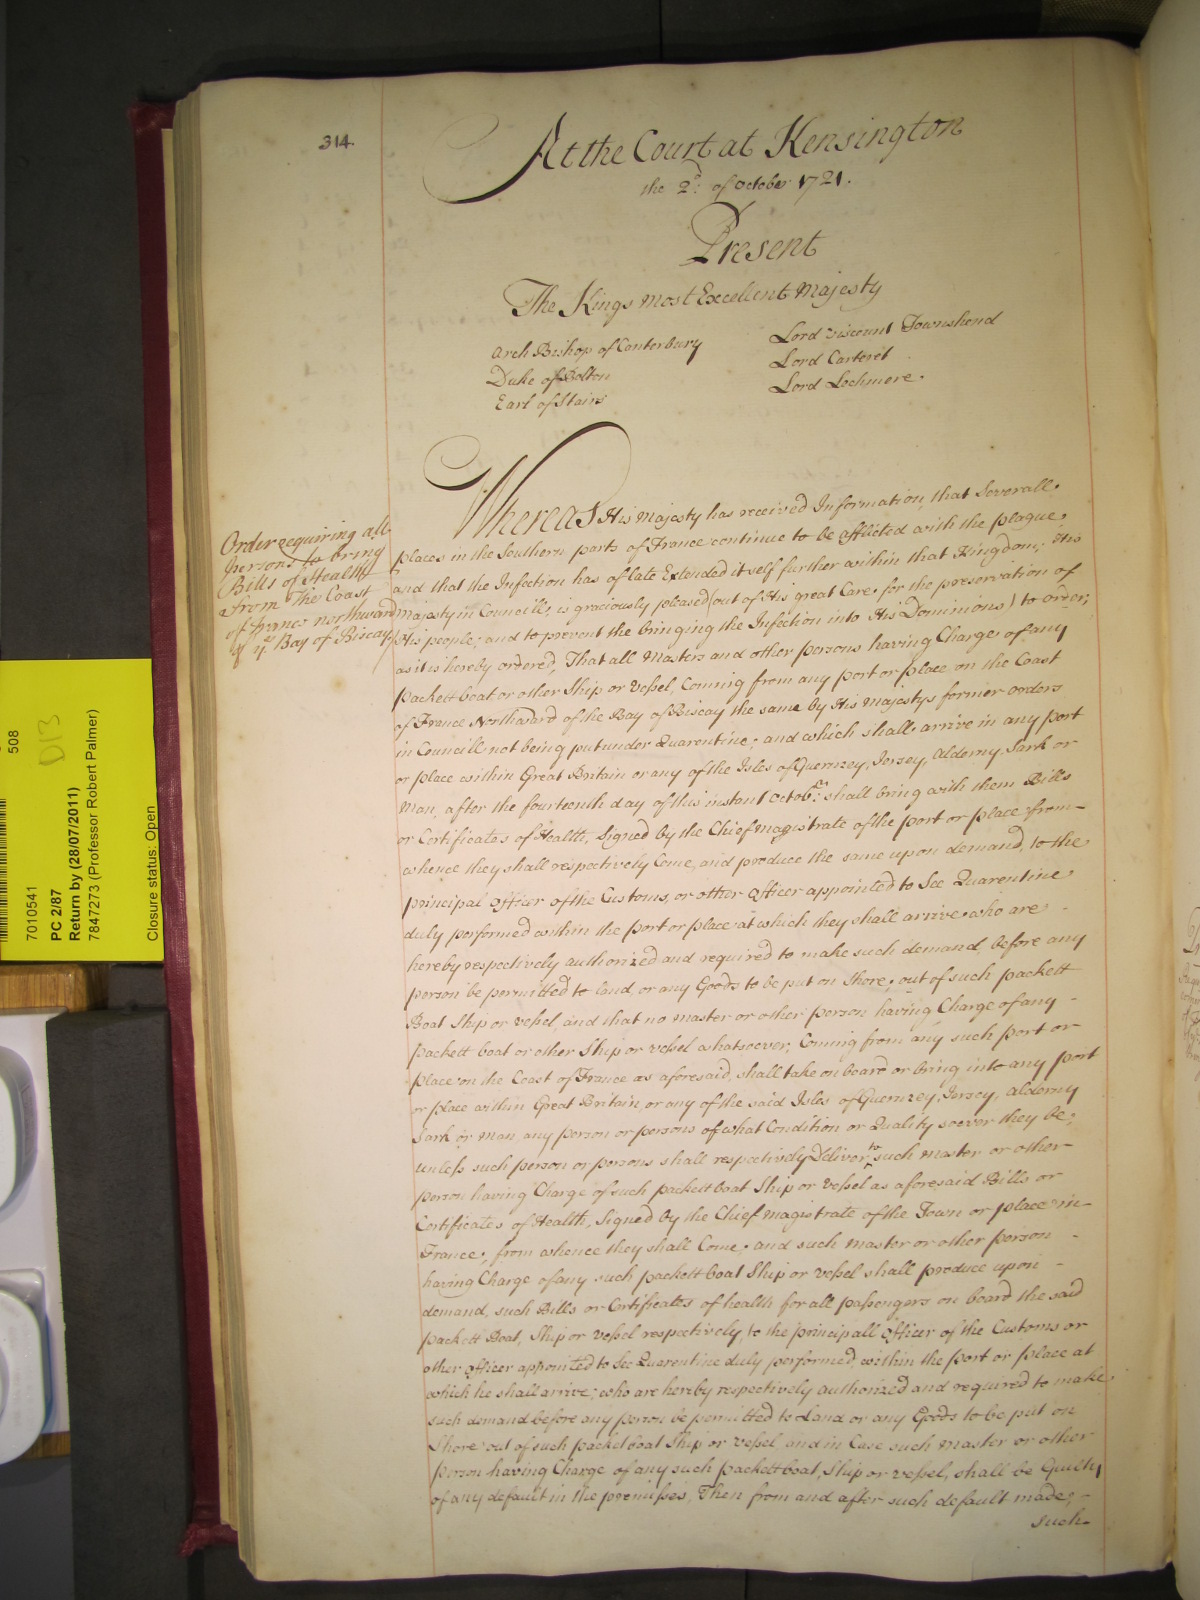 314.
At the Court at Kensington
the 2d. of October 1721.
Present
The Kings most Excellent Majesty
Arch Bishop of Canterbury
Duke of Bolton
Earl of Stairs
Lord Viscount Townshend
Lord Carteret
Lord Lechmere.
Order requiring all
persons to bring
Bills of Health
from the Coast
of france northward
of ye Bay of Biscay
Whereas His Majesty has received Information, that Severall
places in the Southern parts of France continue to be afflicted with the plague,
and that the Infection has of late Extended it self further within that Kingdom; His
Majesty in Councill, is graciously pleased (out of His great Care for the preservation of
His people, and to prevent the bringing the Infection into His Dominions) to order,
as it is hereby ordered, That all Masters and other persons having Charge of any
packett boat or other Ship or Vessel, Coming from any port or place on the Coast
of France Northward of the Bay of Biscay the same by His Majestys former orders
in Councill not being put under Quarentine; and which shall arrive in any port
or place within Great Britain or any of the Isles of Guernzey, Jersey, Alderny, Sark or
Man, after the fourteenth day of this instant Octobr. shall bring with them Bills
or Certificates of Health, Signed by the Chief magistrate of the port or place from
whence they shall respectively Come, and produce the same upon demand, to the
principal officer of the Customs, or other officer appointed to See Quarentine
duly performed within the port or place at which they shall arrive who are
hereby respectively authorized and required to make such demand, before any
person be permitted to land, or any Goods to be put on Shore, out of such packett
Boat Ship or Vessel, and that no master or other person having Charge of any
packett boat or other Ship or vessel whatsoever, Coming from any such port or
place on the Coast of France as aforesaid, shall take on board or bring into any port
or place within Great Britain, or any of the said Isles of Guernzey, Jersey, Alderny
Sark or Man, any person or persons of what Condition or Quality soever they be,
unless such person or persons shall respectively Deliver to such Master or other
person having Charge of such packett boat Ship or Vessel as aforesaid Bills or
Certificates of Health, Signed by the Chief magistrate of the Town or place in
France, from whence they shall Come, and such Master or other person
having Charge of any such packett boat Ship or vessel shall produce upon
demand, such Bills or Certificates of health for all passengers on board the said
packett Boat, Ship or vessel respectively to the principall officer of the Customs or
other officer appointed to See Quarentine duly performed, within the port or place at
which he shall arrive; who are hereby respectively authorized and required to make
such demand before any person be permitted to Land or any Goods to be put on
Shore out of such packet boat Ship or vessel and in Case such Master or other
person having Charge of any such packett boat, Ship or vessel, shall be Guilty
of any default in the premisses, Then from and after such default made,
such
508
D13
7010541
PC 2/87
Return by (28/07/2011)
7847273 (Professor Robert Palmer)
Closure status: Open